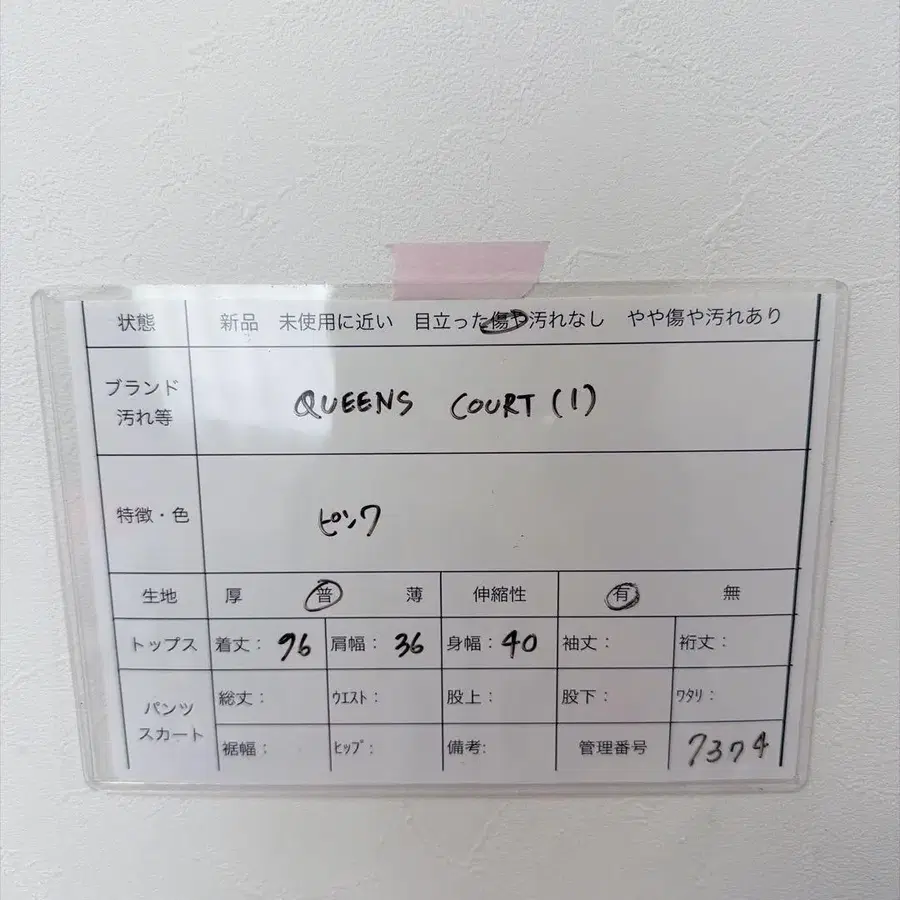 状態 新品 未使用に近い 目立った傷や汚れなし やや傷や汚れあり
ブランド
汚れ等
QUEENS COURT (1)
特徴・色 ピンク
生地 厚 普 薄 伸縮性 有 無
トップス 着丈: 96 肩幅: 36 身幅: 40 袖丈: 裄丈:
パンツ
スカート
総丈: ウエスト: 股上: 股下: ワタリ:
裾幅: ヒップ: 備考: 管理番号 7374